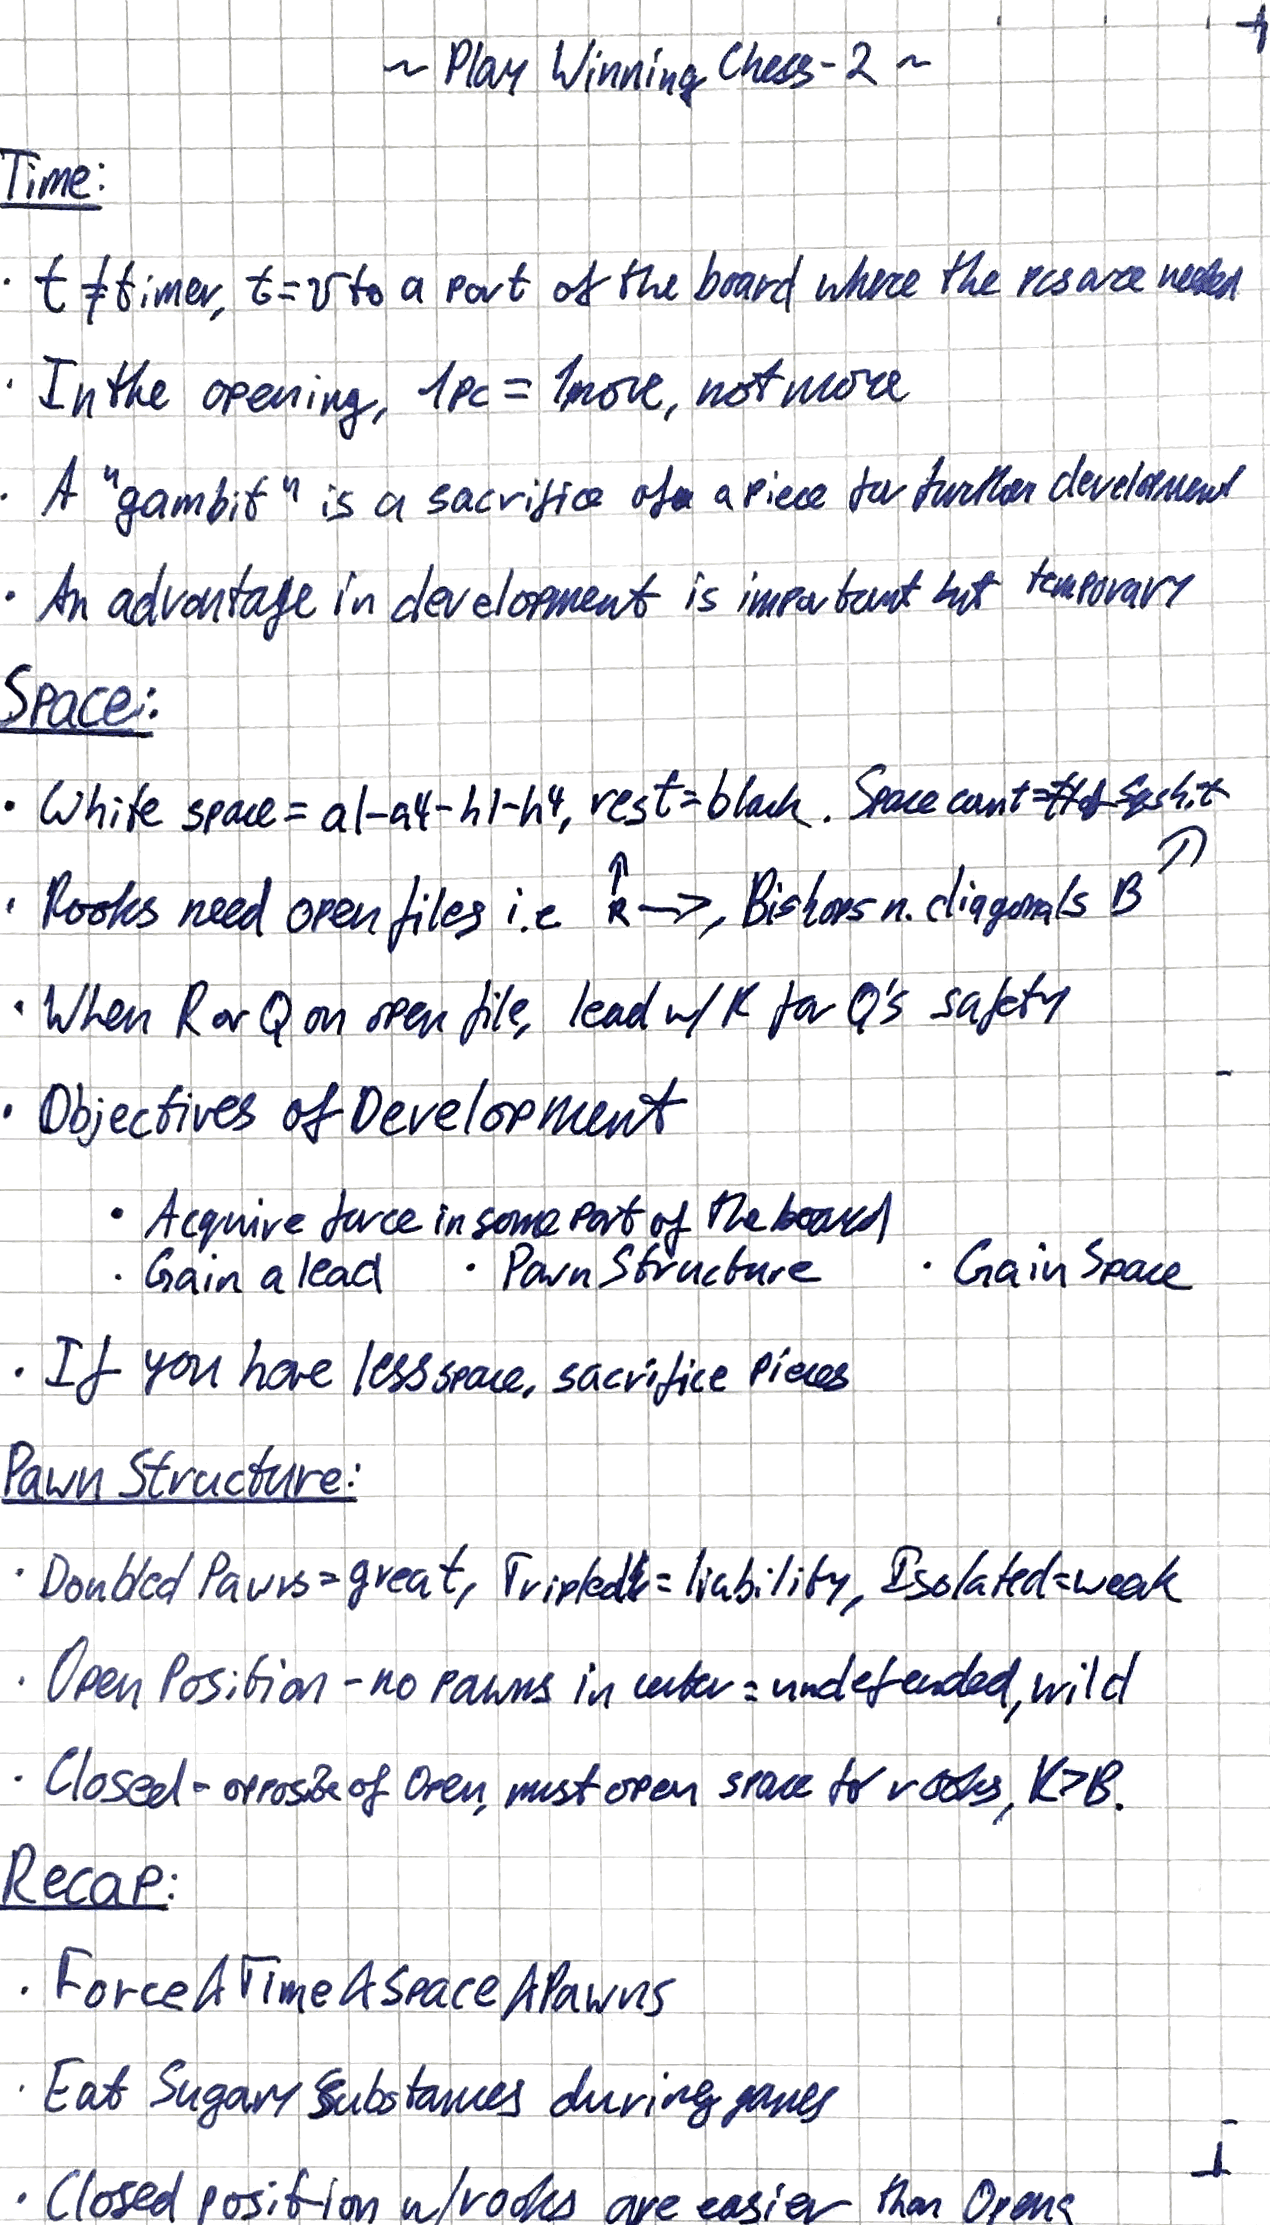 ~ Play Winning Chess - 2 ~
Time:
· t ≠ timer, t = v to a part of the board where the pcs are needed
· In the opening, 1pc = 1move, not more
· A "gambit" is a sacrifice of a piece for further development
· An advantage in development is important but temporary
Space:
· White space = a1-a4-h1-h4, rest = black. Space count = # of Sqs hit
· Rooks need open files i.e R →, Bishops n. diagonals B
· When R or Q on open file, lead w/ R for Q's safety
· Objectives of Development
· Acquire force in some part of the board
· Gain a lead · Pawn Structure · Gain Space
· If you have less space, sacrifice pieces
Pawn Structure:
· Doubled Pawns = great, Tripled = liability, Isolated = weak
· Open Position - no pawns in center = undefended, wild
· Closed - opposite of Open, must open space for rooks, K > B.
Recap:
· Force Λ Time Λ Space Λ Pawns
· Eat Sugary Substances during games
· Closed position w/ rooks are easier than Opens